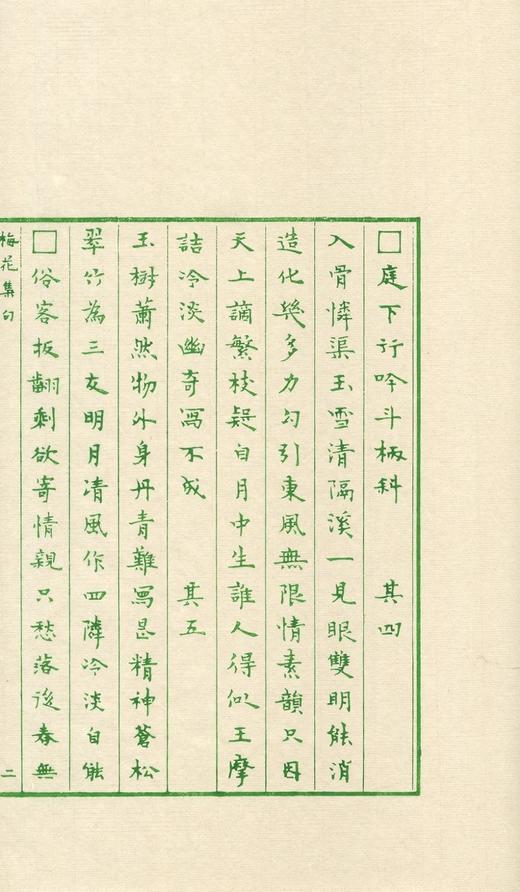 □庭下行吟斗柄斜　其四
入骨憐渠玉雪清隔溪一見眼雙明能消
造化幾多力勾引東風無限情素韻只因
天上謫繁枝疑自月中生誰人得似王摩
詰冷淡幽奇寫不成　其五
玉樹蕭然物外身丹青難寫是精神蒼松
翠竹為三友明月凊風作四隣冷淡自能
□俗客扳翻剩欲寄情親只愁落後春無
梅花集句
二